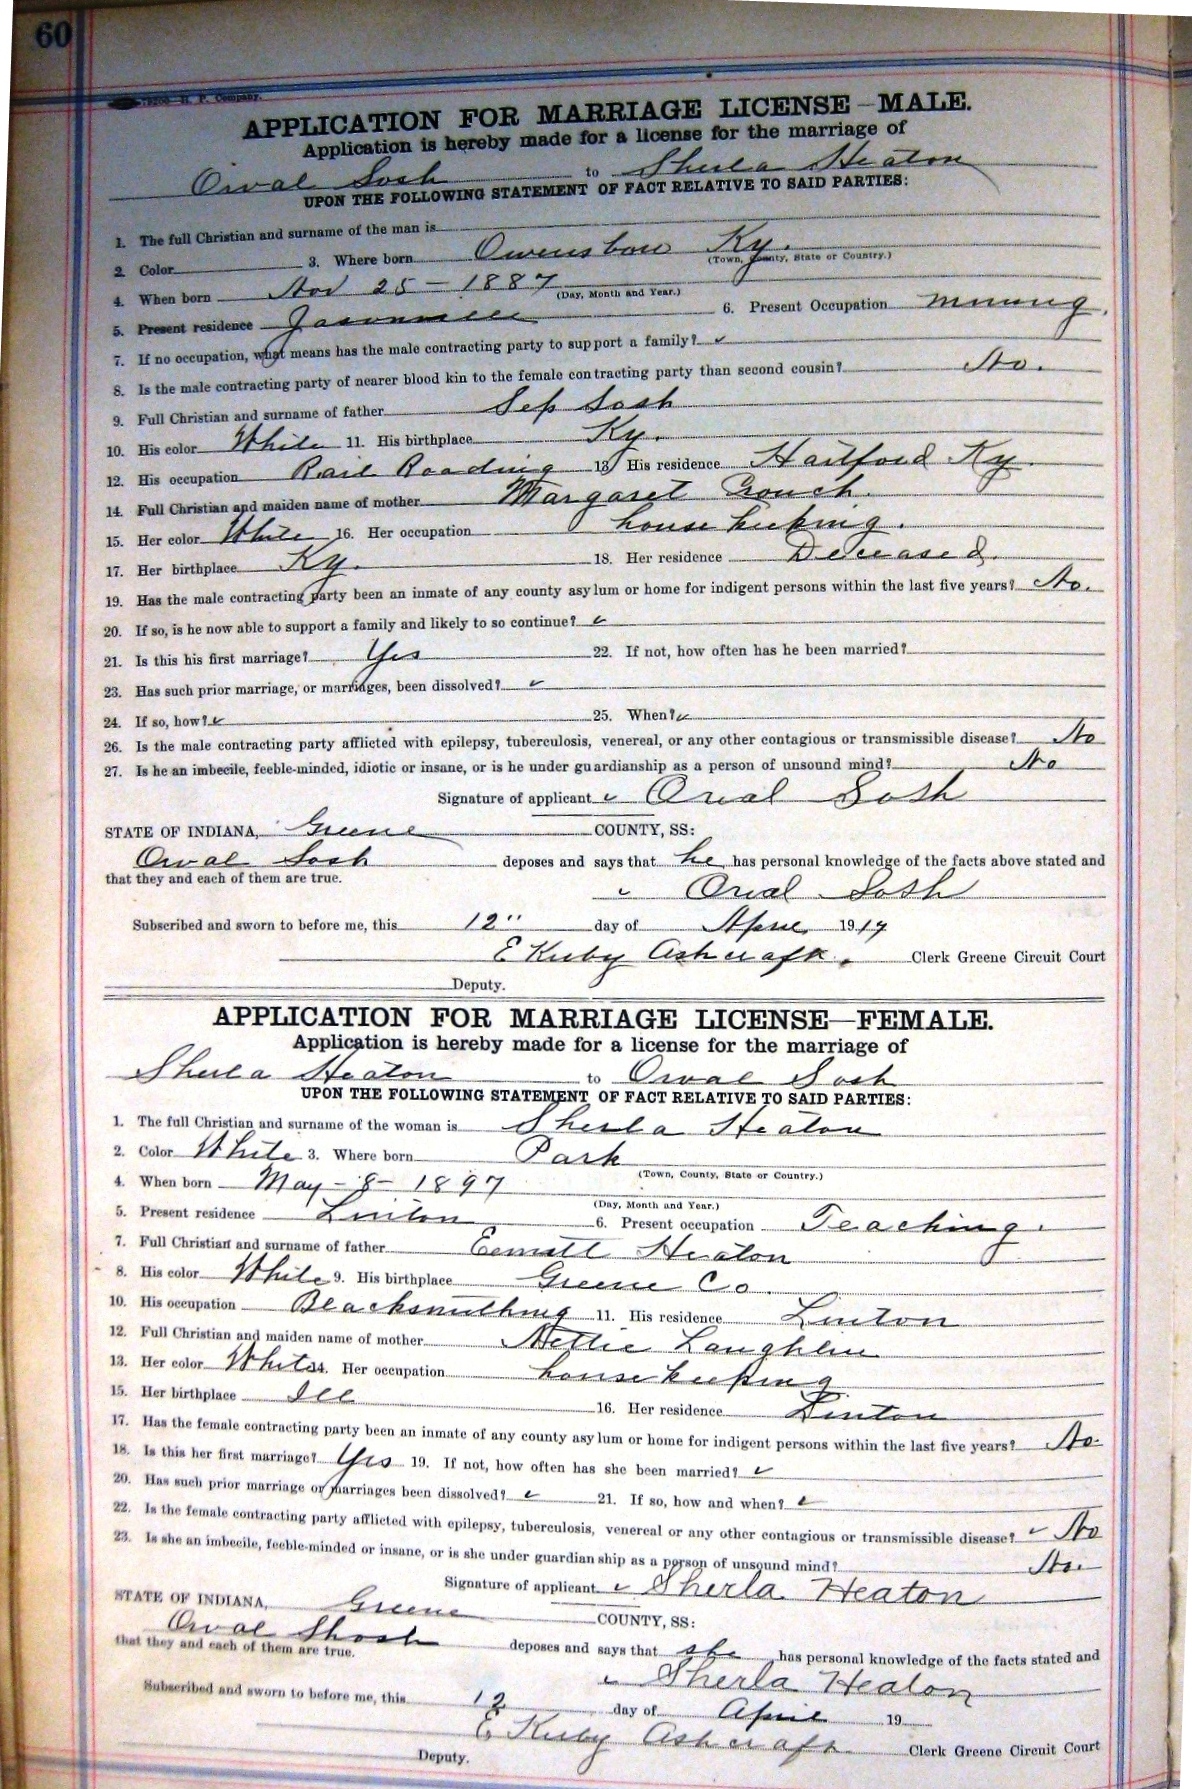 60
H. P. Company.
APPLICATION FOR MARRIAGE LICENSE—MALE.
Application is hereby made for a license for the marriage of
Orval Sosh to Sherla Heaton
UPON THE FOLLOWING STATEMENT OF FACT RELATIVE TO SAID PARTIES:
1. The full Christian and surname of the man is
2. Color 3. Where born Owensboro Ky.
(Town, County, State or Country.)
4. When born Nov 25 - 1887
(Day, Month and Year.)
5. Present residence Jasonville 6. Present Occupation Mining.
7. If no occupation, what means has the male contracting party to support a family? ✓
8. Is the male contracting party of nearer blood kin to the female contracting party than second cousin? No.
9. Full Christian and surname of father Sep Sosh
10. His color White 11. His birthplace Ky.
12. His occupation Rail Roading 13. His residence Hartford Ky.
14. Full Christian and maiden name of mother Margaret Crouch.
15. Her color White 16. Her occupation house keeping.
17. Her birthplace Ky. 18. Her residence Deceased.
19. Has the male contracting party been an inmate of any county asylum or home for indigent persons within the last five years? No.
20. If so, is he now able to support a family and likely to so continue? ✓
21. Is this his first marriage? Yes 22. If not, how often has he been married?
23. Has such prior marriage, or marriages, been dissolved? ✓
24. If so, how? ✓ 25. When? ✓
26. Is the male contracting party afflicted with epilepsy, tuberculosis, venereal, or any other contagious or transmissible disease? No
27. Is he an imbecile, feeble-minded, idiotic or insane, or is he under guardianship as a person of unsound mind? No
Signature of applicant ✓ Orval Sosh
STATE OF INDIANA, Greene COUNTY, SS:
Orval Sosh deposes and says that he has personal knowledge of the facts above stated and
that they and each of them are true.
✓ Orval Sosh
Subscribed and sworn to before me, this 12" day of April 1917
E Kirby Ashcraft. Clerk Greene Circuit Court
Deputy.
APPLICATION FOR MARRIAGE LICENSE—FEMALE.
Application is hereby made for a license for the marriage of
Sherla Heaton to Orval Sosh
UPON THE FOLLOWING STATEMENT OF FACT RELATIVE TO SAID PARTIES:
1. The full Christian and surname of the woman is Sherla Heaton
2. Color White 3. Where born Park
(Town, County, State or Country.)
4. When born May - 8 - 1897
(Day, Month and Year.)
5. Present residence Linton 6. Present occupation Teaching.
7. Full Christian and surname of father Heaton
8. His color White 9. His birthplace Greene Co.
10. His occupation Blacksmithing 11. His residence Linton
12. Full Christian and maiden name of mother Nettie Laughlin
13. Her color White 14. Her occupation house keeping
15. Her birthplace Ill 16. Her residence Linton
17. Has the female contracting party been an inmate of any county asylum or home for indigent persons within the last five years? No.
18. Is this her first marriage? Yes 19. If not, how often has she been married? ✓
20. Has such prior marriage or marriages been dissolved? ✓ 21. If so, how and when? ✓
22. Is the female contracting party afflicted with epilepsy, tuberculosis, venereal or any other contagious or transmissible disease? ✓ No
23. Is she an imbecile, feeble-minded or insane, or is she under guardianship as a person of unsound mind? No.
Signature of applicant ✓ Sherla Heaton
STATE OF INDIANA, Greene COUNTY, SS:
Orval Shosh deposes and says that she has personal knowledge of the facts stated and
that they and each of them are true.
✓ Sherla Heaton
Subscribed and sworn to before me, this 12 day of April 19
E Kirby Ashcraft Clerk Greene Circuit Court
Deputy.